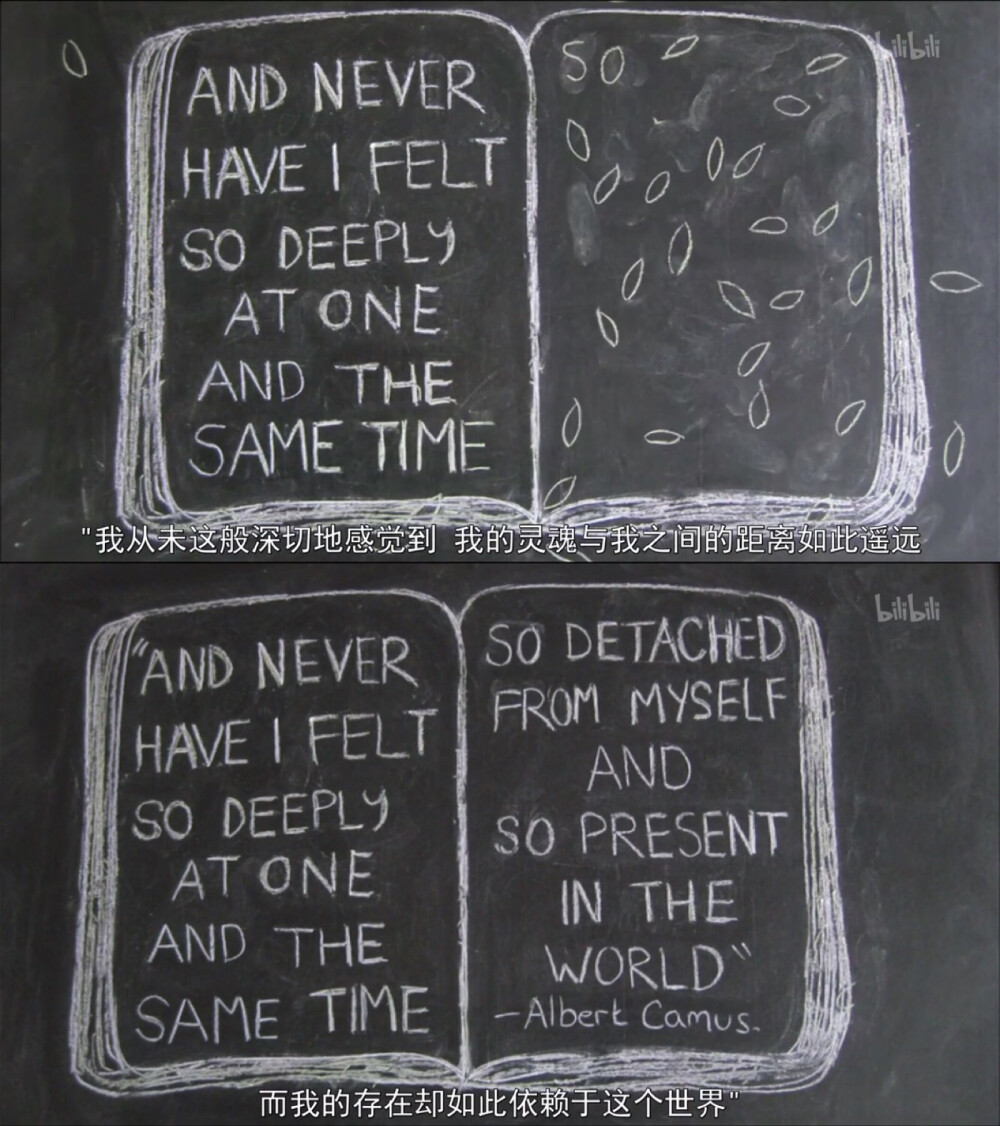 AND NEVER
HAVE I FELT
SO DEEPLY
AT ONE
AND THE
SAME TIME
SO
bilibili
"我从未这般深切地感觉到 我的灵魂与我之间的距离如此遥远
"AND NEVER
HAVE I FELT
SO DEEPLY
AT ONE
AND THE
SAME TIME
SO DETACHED
FROM MYSELF
AND
SO PRESENT
IN THE
WORLD"
-Albert Camus.
bilibili
而我的存在却如此依赖于这个世界"